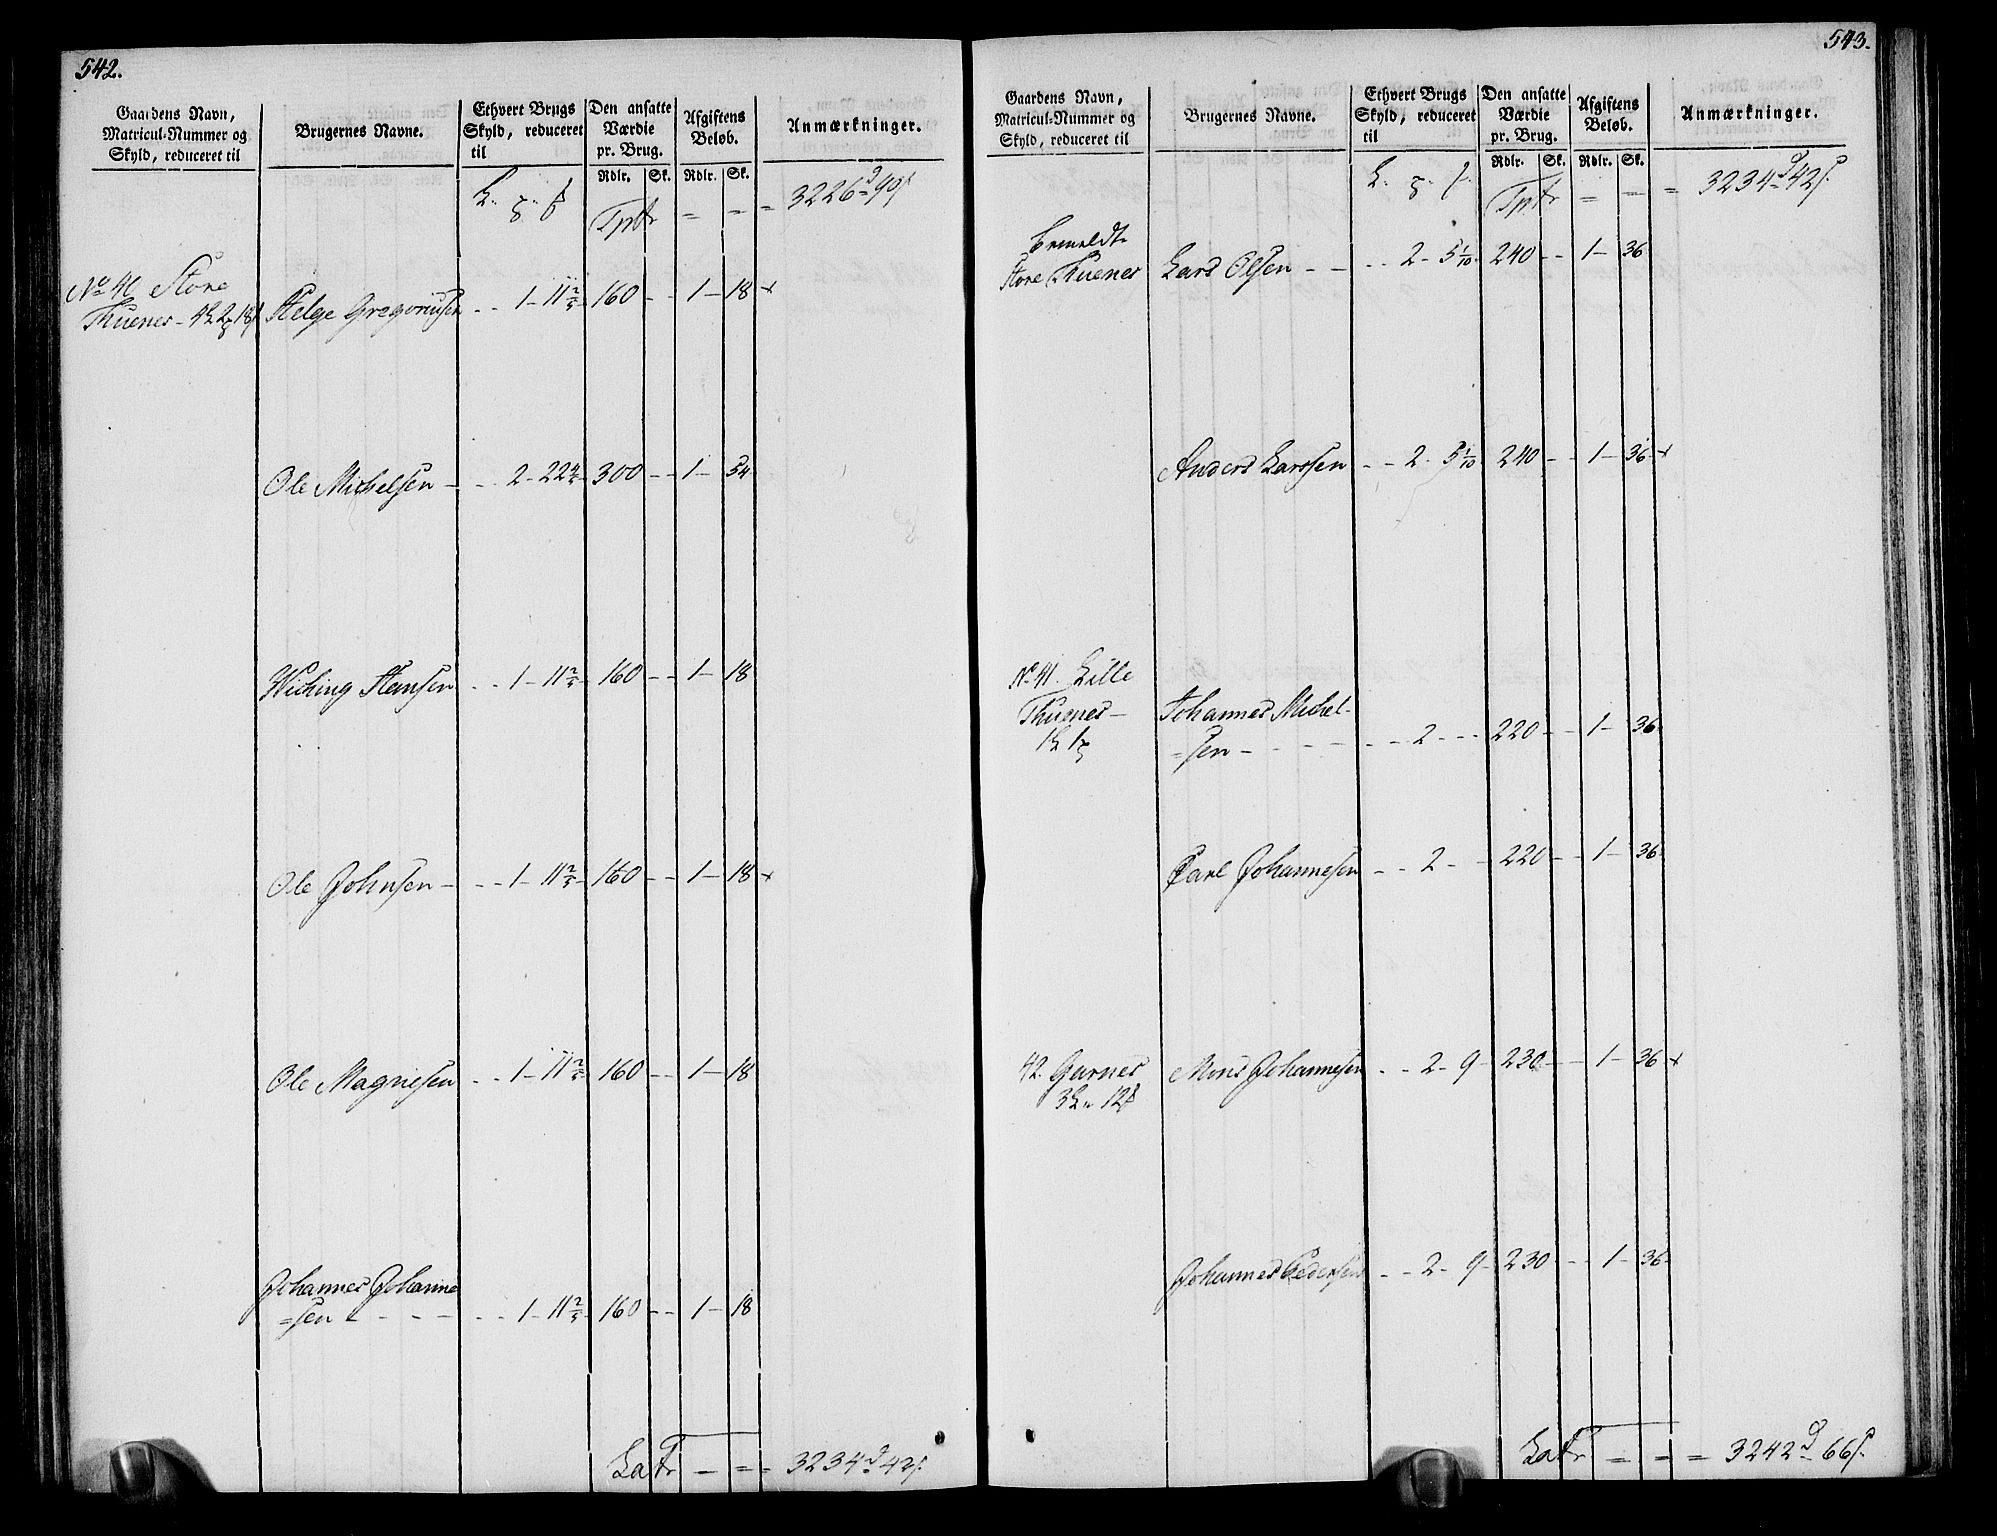 542.
Gaardens Navn, Matricul-Nummer og Skyld, reduceret til
Brugernes Navne.
Ethvert Brugs Skyld, reduceret til
Den ansatte Værdie pr. Brug.
Afgiftens Beløb.
Anmærkninger.
Rdlr. Sk. Rdlr. Sk.
Tptr = = = 3226 90
Store
Thuenes Helge Gregoriusen - - 1 - 11 2/5 160 - - 1 - 18 x
Ole Michelsen - - - 2 - 22 4/5 300 - - 1 - 54
Wiching Hansen - - 1 - 11 2/5 160 - - 1 - 18
Ole Johnsen - - - 1 - 11 2/5 160 - - 1 - 18 x
Ole Magnesen - - 1 - 11 2/5 160 - - 1 - 18
Johannes Johanne
=sen - - - - - 1 - 11 2/5 160 - - 1 - 18
LaTr - = = 3234 42
543.
Gaardens Navn, Matricul-Nummer og Skyld, reduceret til
Brugernes Navne.
Ethvert Brugs Skyld, reduceret til
Den ansatte Værdie pr. Brug.
Afgiftens Beløb.
Anmærkninger.
Rdlr. Sk. Rdlr. Sk.
Tptr = = = 3234 42
bemeldte
Store Thuenes Lars Olsen - - - - 2 - 5 1/10 240 - - 1 - 36
Anders Larssen - - 2 - 5 1/10 240 - - 1 - 36 x
No 41. Lille
Thuenes - Johannes Michel-
=sen - - - - - - 2 - - - 220 - - 1 - 36
Carl Johannesen - - 2 - - 220 - - 1 - 36
42. Garnes Mons Johannesen - - 2 - 9 - 230 - - 1 - 36 x
Johannes Pedersen - - 2 - 9 - 230 - - 1 - 36
LaTr = = = 3242 66